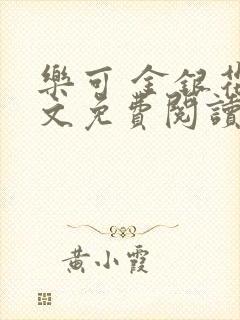 樂可 金銀花
文免費閱讀
黃小霞